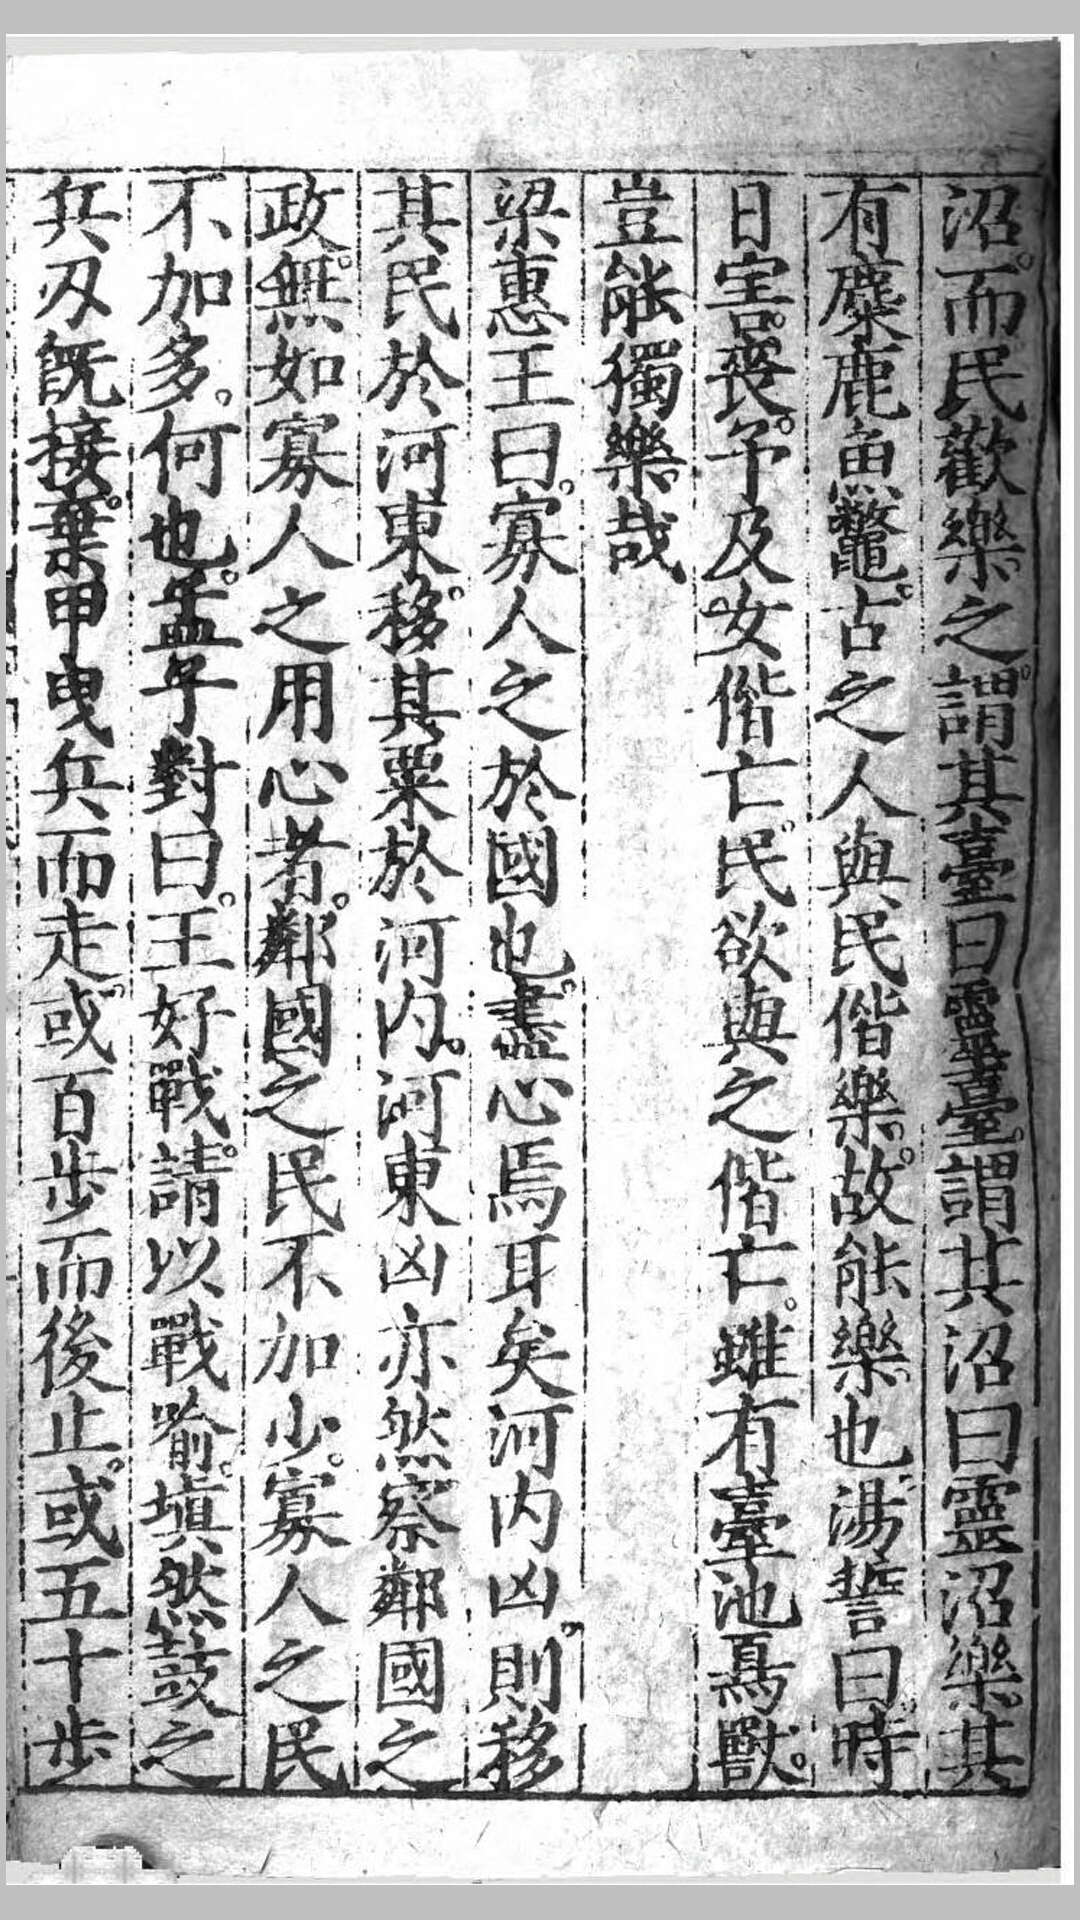 沼。而民歡樂之。謂其臺曰靈臺。謂其沼曰靈沼樂。其
有麋鹿魚鼈。古之人與民偕樂。故能樂也湯誓曰時
日害。喪。予及女偕亡。民欲與之偕亡。雖有臺池鳥獸。
豈能獨樂哉
梁惠王曰。寡人之於國也。盡心焉耳矣河内凶。則移
其民於河東。移其粟於河内。河東凶亦然察鄰國之
政。無如寡人之用心者。鄰國之民不加少。寡人之民
不加多。何也。孟子對曰。王好戰。請以戰喻。塡然鼓之
兵刃旣接。棄甲曳兵而走。或百歩而後止。或五十歩